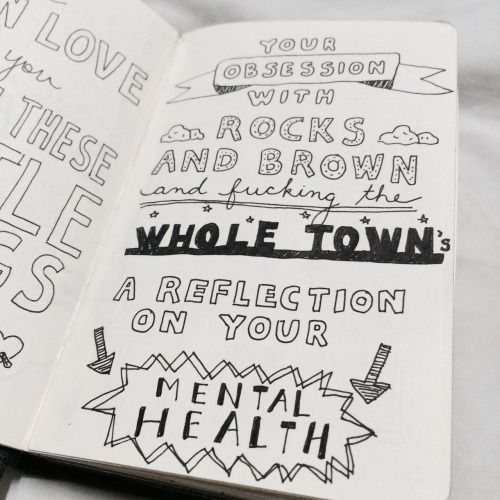 N LOVE
you
THESE
TLE
GS
YOUR
OBSESSION
WITH
ROCKS
AND BROWN
and fucking the
WHOLE TOWN's
A REFLECTION
ON YOUR
MENTAL
HEALTH